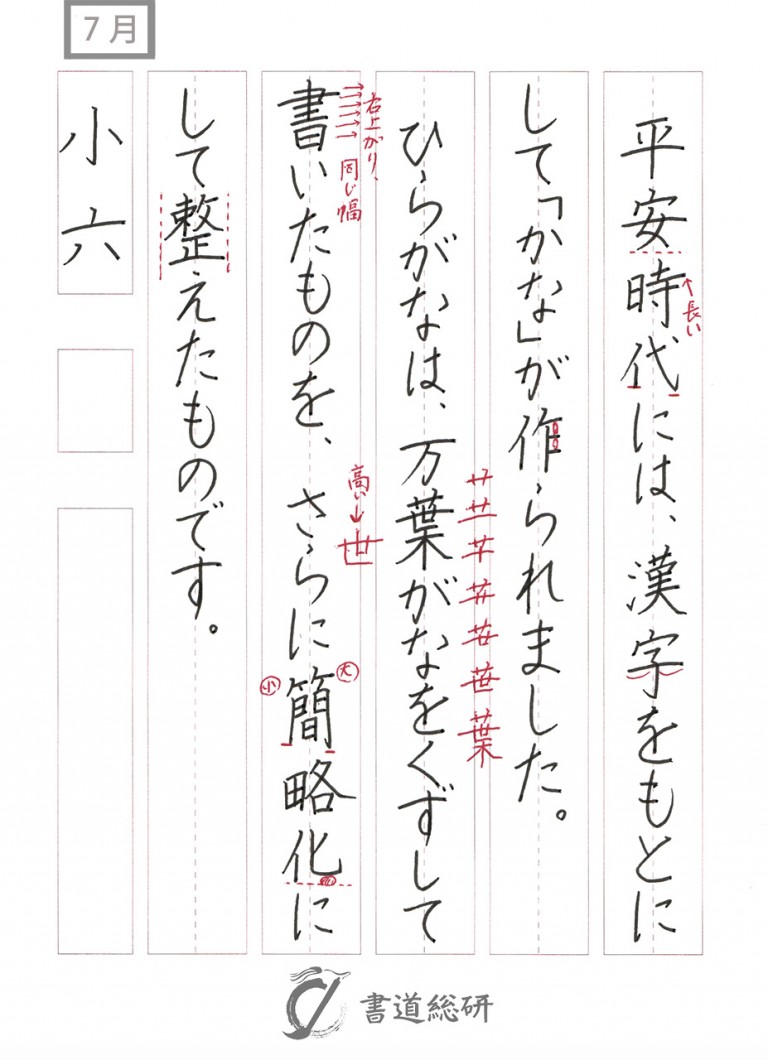 7月
平安時代には、漢字をもとに
して「かな」が作られました。
ひらがなは、万葉がなをくずして
書いたものを、さらに簡略化に
して整えたものです。
小六
長い
右上がり、
同じ幅
艹
世
高い
世
葉
大
小
書道総研